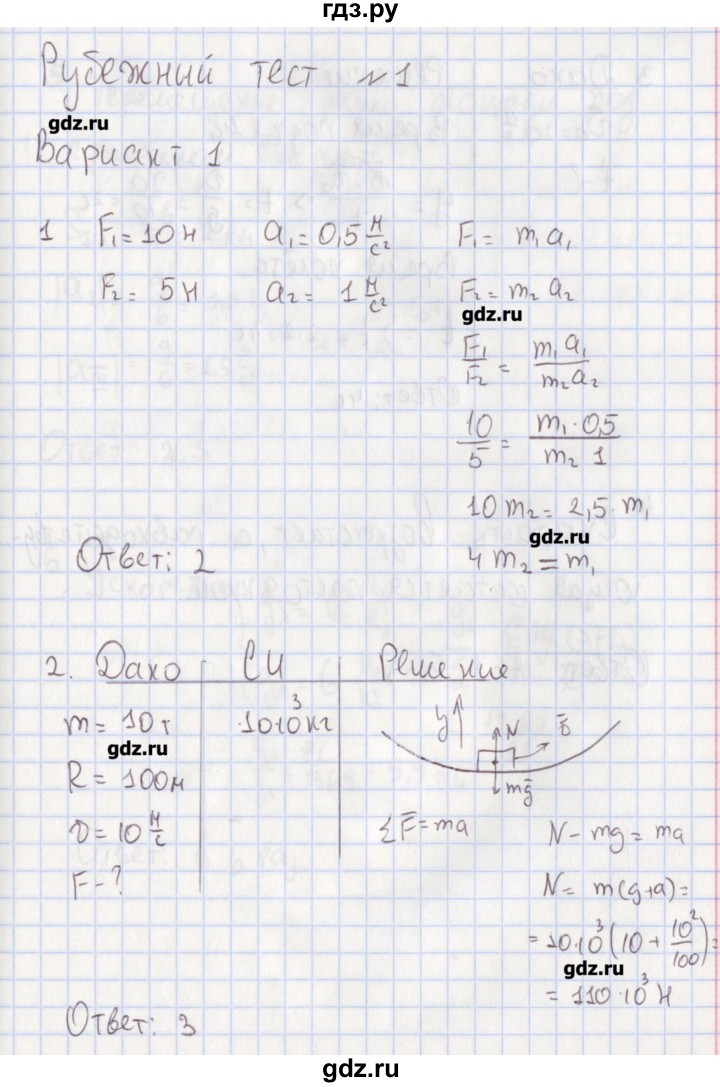 гдз.ру
Рубежный тест №1
gdz.ru
Вариант 1
1 F₁=10н a₁=0,5 м/с² F₁= m₁a₁
F₂= 5н a₂= 1 м/с² F₂= m₂a₂
gdz.ru
F₁/F₂ = m₁a₁/m₂a₂
10/5 = m₁·0,5/m₂ 1
10m₂= 2,5·m₁
gdz.ru
Ответ: 2 4m₂=m₁
2. Дано СИ Решение
m= 10т ·10·10³кг y N v̄
gdz.ru
R= 100м mḡ
v= 10 м/с ΣF̄=ma N-mg=ma
F-? N= m(g+a)=
=10·10³(10+10²/100)=
gdz.ru
=110·10³ Н
Ответ: 3
gdz.ru